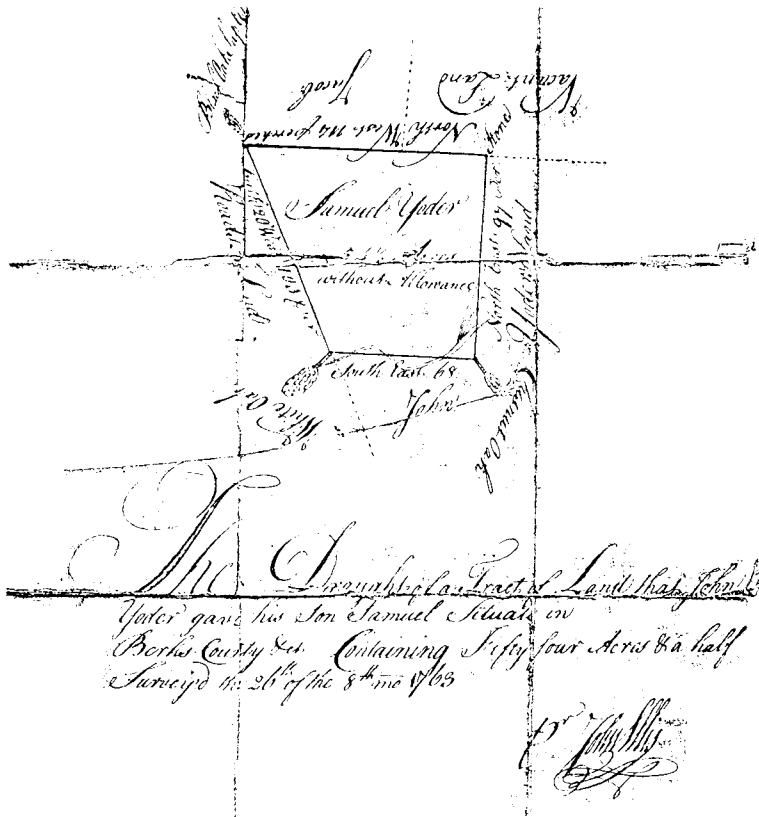 Black Oak
Jacob
Vacant Land
North West 114 perches
Stones
Samuel Yoder
54½ Acres
without Allowance
North East 97
Yoders land
South East 68
White Oak
John
Chesnut Oak
The Draught of a Tract of Land that John
Yoder gave his Son Samuel Situate in
Berks County &c. Containing Fifty four Acres & a half
Survey'd the 26th of the 8th mo 1763
Pr John Ellis